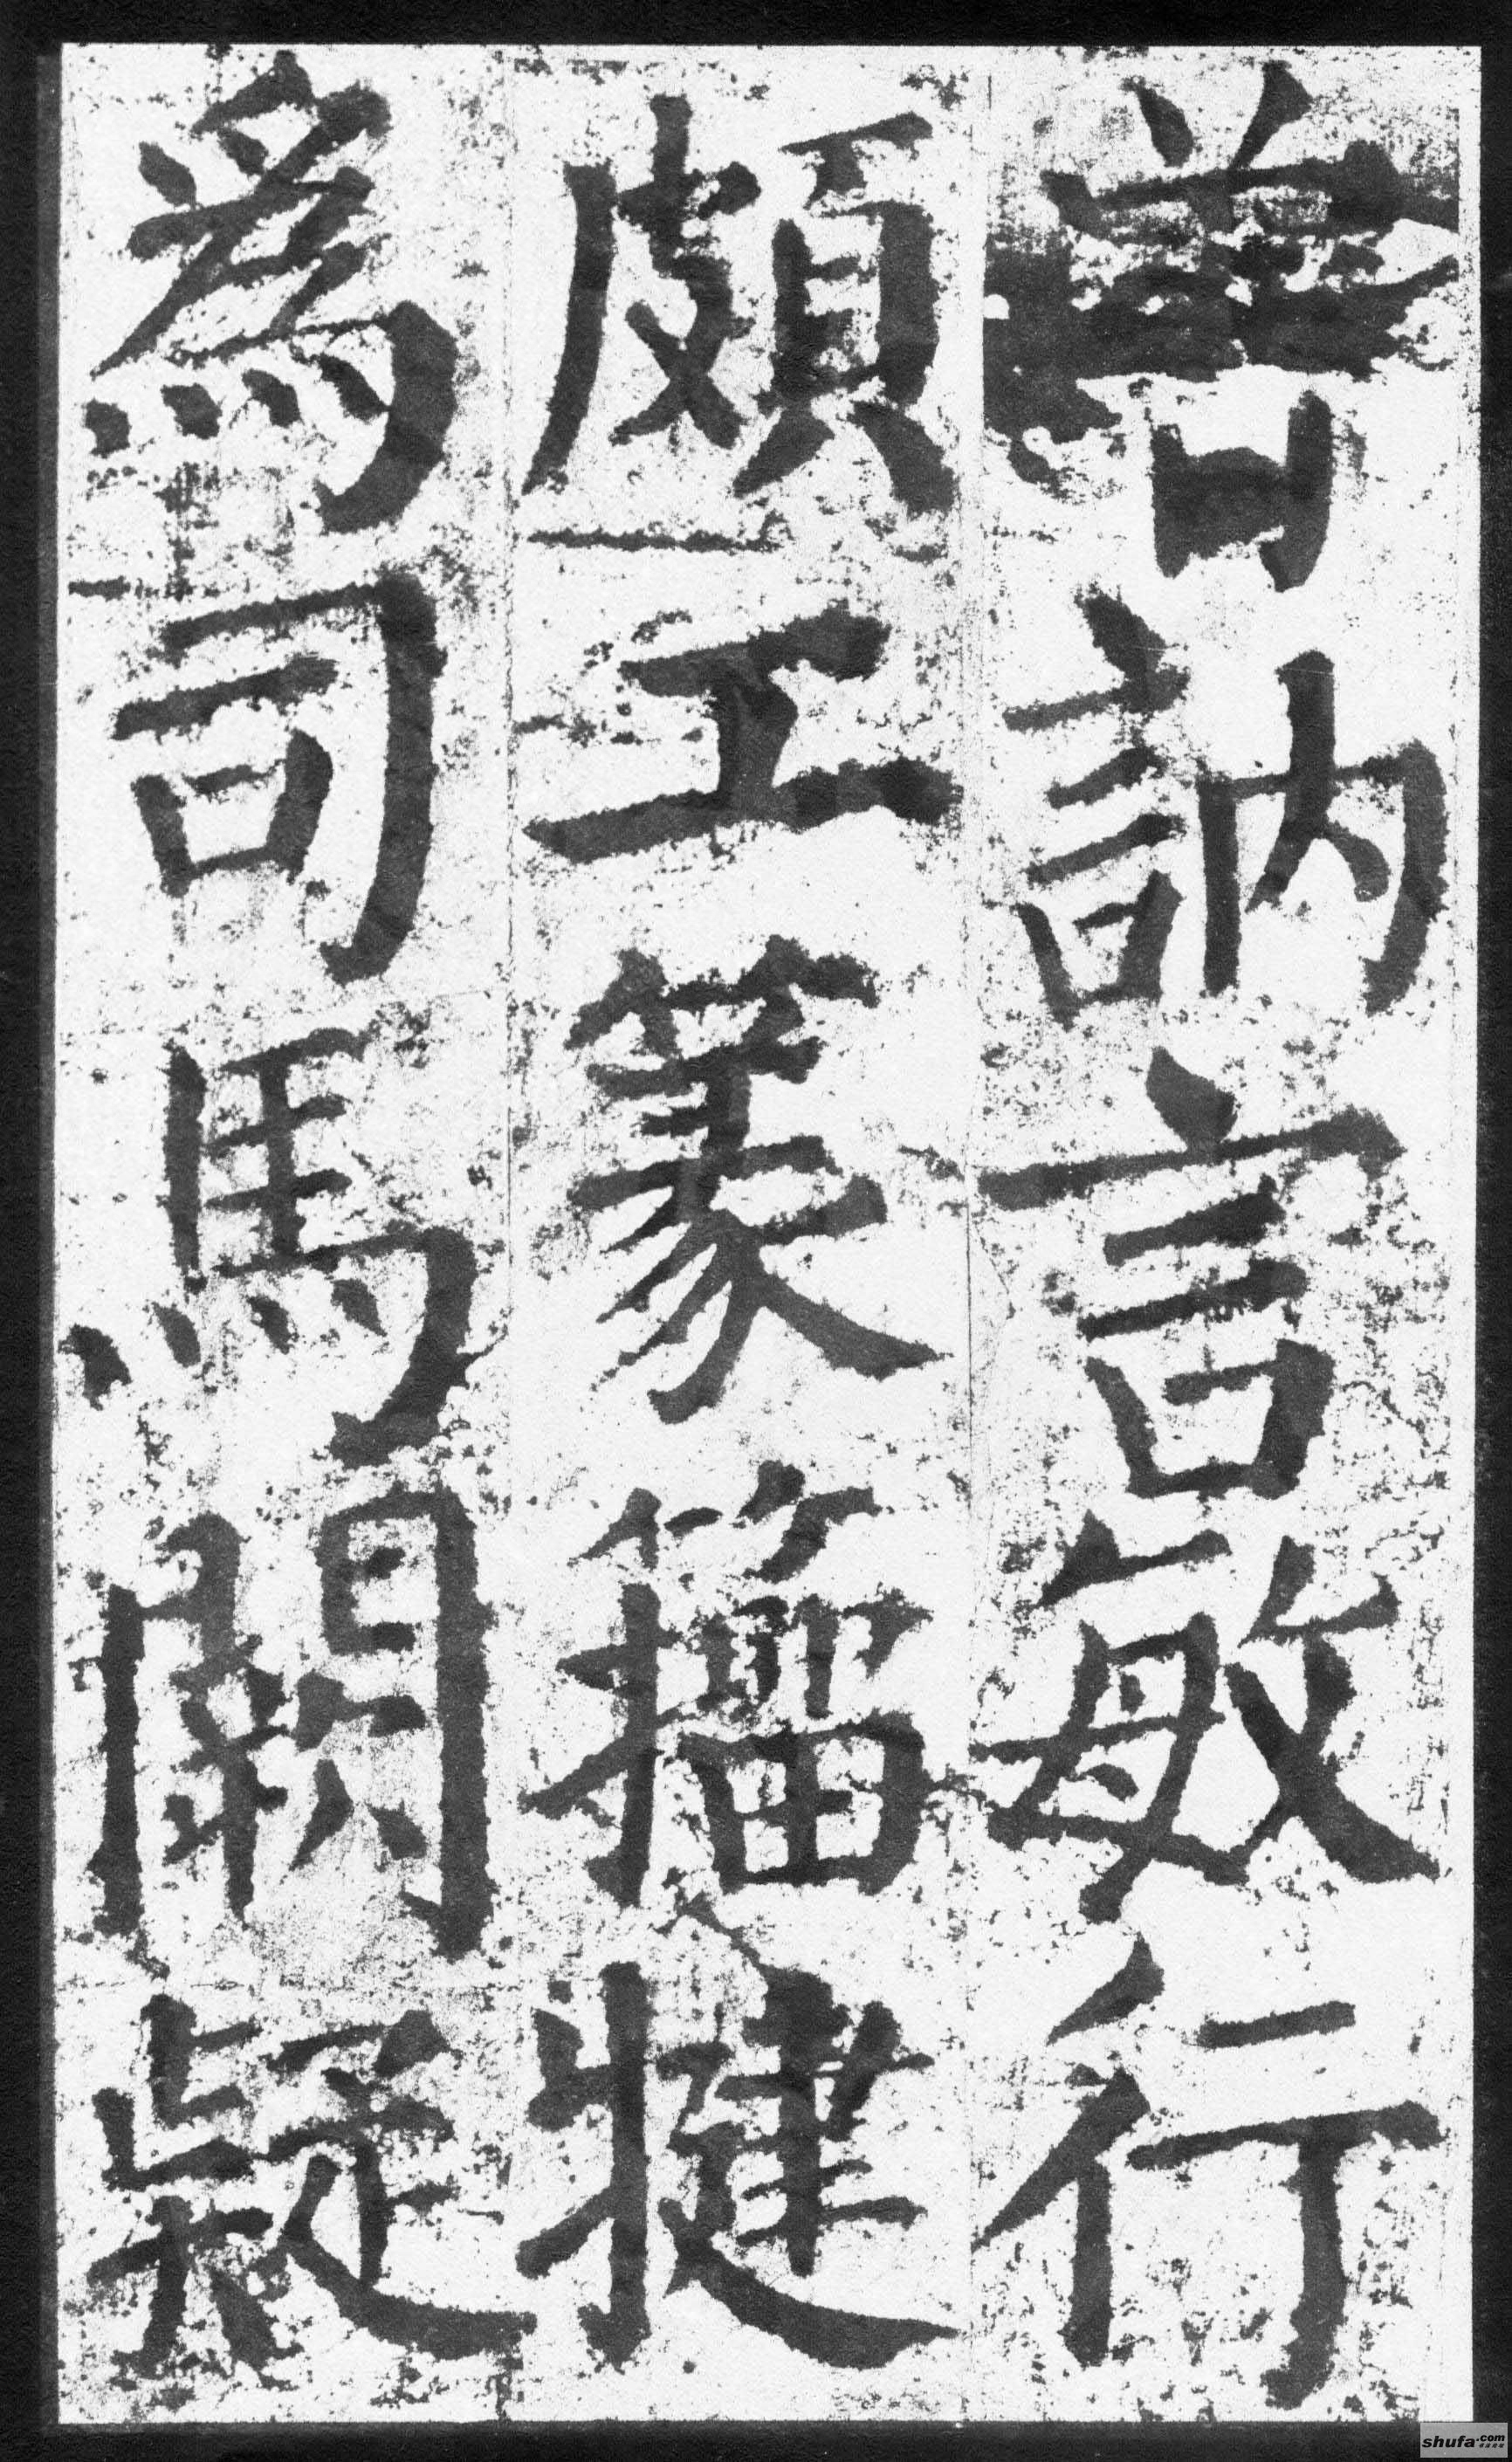 曾訥言敏行
頗工篆籀犍
為司馬闕疑
shufa.com